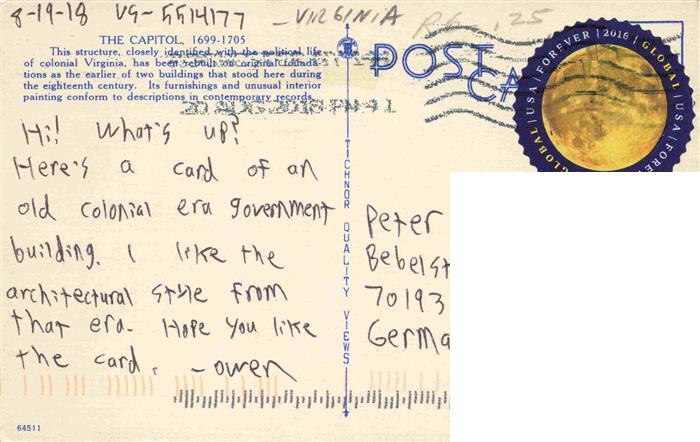 8-19-18 US-5514177 -VIRGINIA .25
THE CAPITOL, 1699-1705
This structure, closely identified with the political life
of colonial Virginia, has been rebuilt on original founda-
tions as the earlier of two buildings that stood here during
the eighteenth century. Its furnishings and unusual interior
painting conform to descriptions in contemporary records.
Hi! What's up?
Here's a card of an
old colonial era government
building. I like the
architectural style from
that era. Hope you like
the card. -Owen
64511
TICHNOR QUALITY VIEWS
POST CA
USA | FOREVER | 2016 | GLOBAL | USA | FOREV
GLOBAL
Peter
Bebelst
70193
Germa